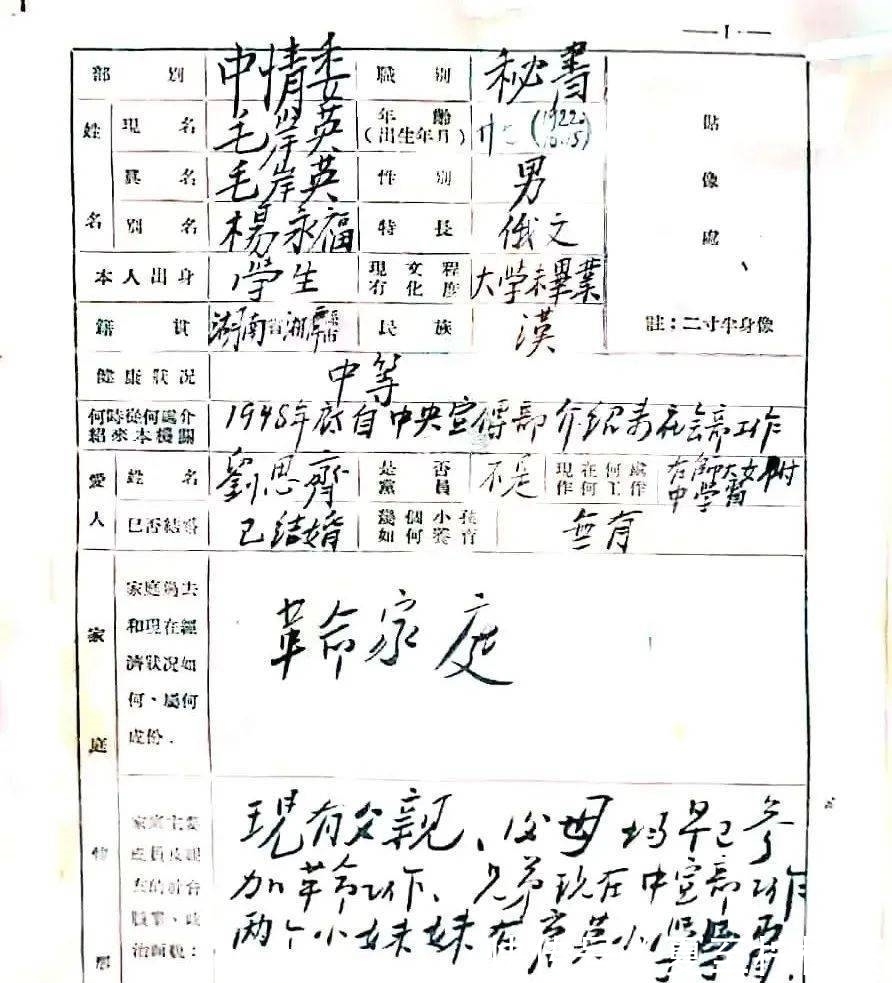 — 1 · —
部別 中情委 職別 秘書
姓名 現名 毛岸英 年齡(出生年月) 廿七(1922.10.15)
真名 毛岸英 性別 男
別名 楊永福 特長 俄文
本人出身 學生 現有文化程度 大学未畢業
籍貫 湖南省湘潭縣 民族 漢
貼像處
註:二寸半身像
健康狀况 中等
何時從何處介紹來本機關 1948年底自中央宣傳部介紹来社会部工作
愛人 姓名 劉思齊 是否黨員 不是 現在何處作何工作 在師大女附中學習
已否結婚 已结婚 幾個小孩如何養育 無有
家庭情
家庭過去
和現在經
濟狀况如
何、屬何
成份.
革命家庭
家庭主要
職業、政
治面貌:
現有父親、父母均早已参
加革命工作、兄弟現在中宣部工作
两个小妹妹在育英小學學習.